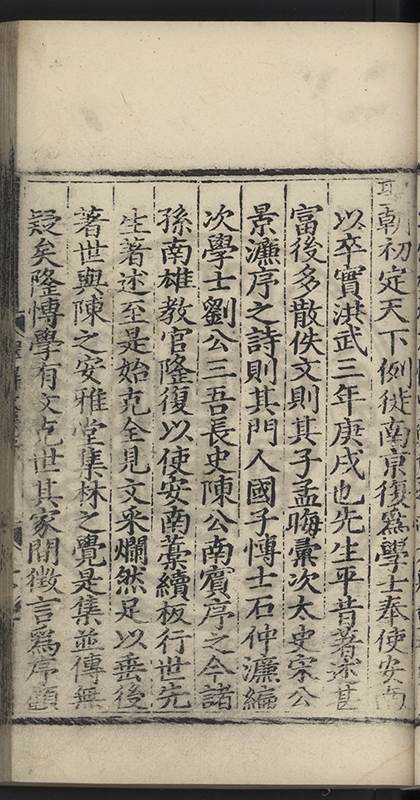 聖朝初定天下例徙南京復爲學士奉使安南
以卒實洪武三年庚戌也先生平昔著述甚
富後多散佚文則其子孟晦彙次太史宋公
景濂序之詩則其門人國子博士石仲濂編
次學士劉公三吾長史陳公南賓序之今諸
孫南雄教官隆復以使安南藁續板行世先
生著述至是始克全見文采爛然足以垂後
著世與陳之安雅堂集林之覺是集並傳無
疑矣隆博學有文克世其家閒徵言爲序顧